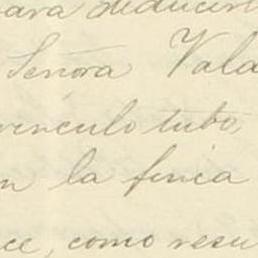 para deducir
Señora Vala
vinculo tubo
en la finca
ce, como resu